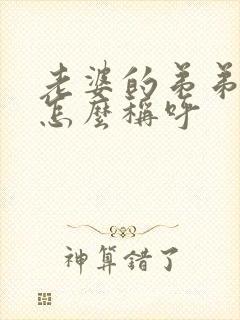 老婆的弟弟
怎麼稱呼
神算錯了